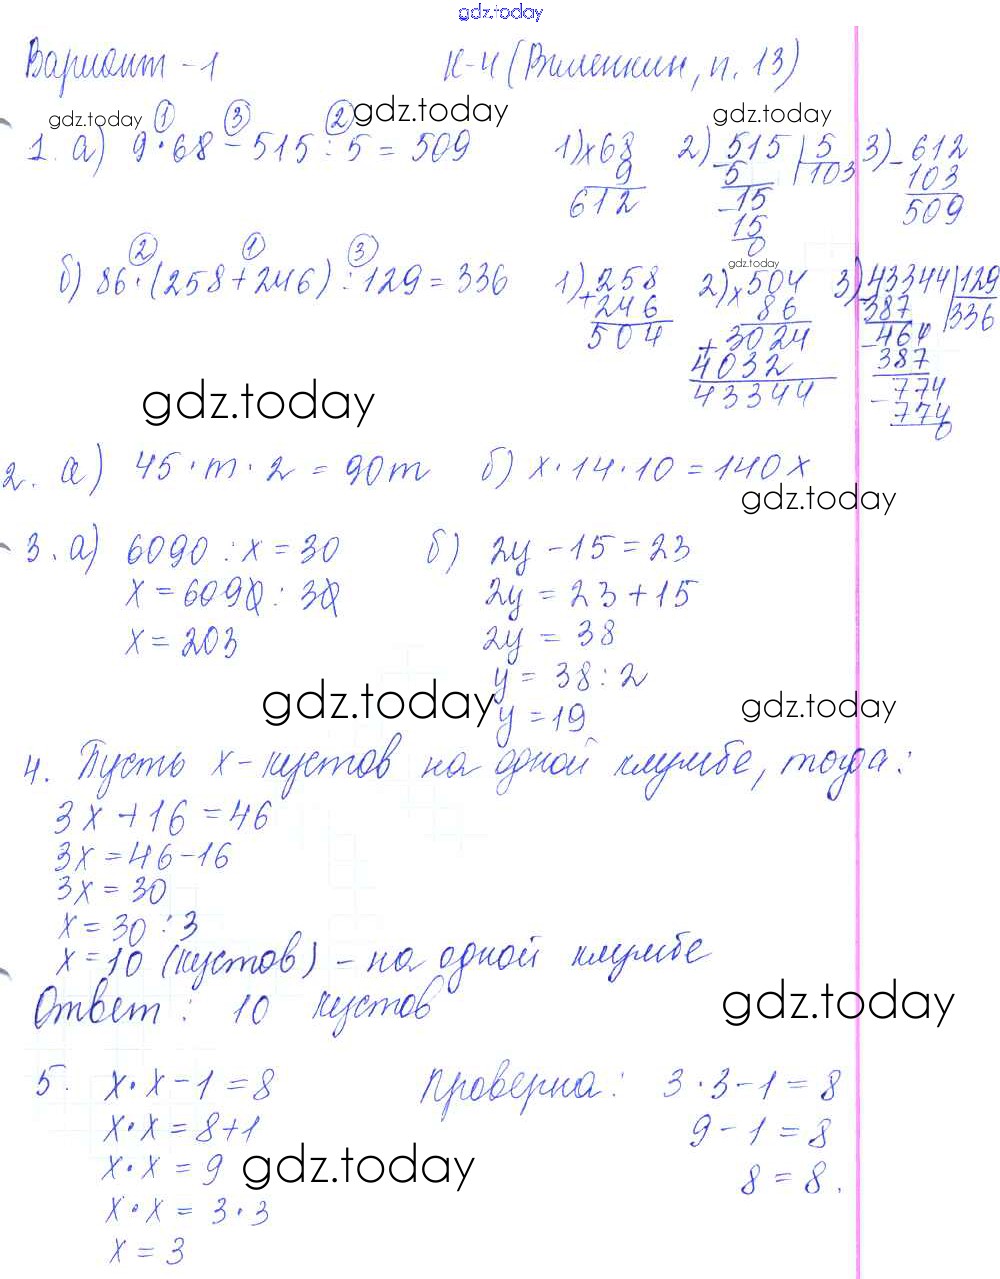 gdz.today
Вариант - 1 К-4 (Виленкин, п. 13)
gdz.today gdz.today gdz.today
① ③ ②
1. а) 9 · 68 - 515 : 5 = 509
1) × 68
9
612
2) - 515 | 5
5 103
- 15
15
0
3) - 612
103
509
② ① ③
б) 86 · (258 + 246) : 129 = 336
gdz.today
1) + 258
246
504
2) × 504
86
+ 3024
4032
43344
3) - 43344 | 129
387 336
- 464
387
- 774
774
0
gdz.today
2. а) 45 · m · 2 = 90m б) x · 14 · 10 = 140x
gdz.today
3. а) 6090 : x = 30
x = 6090 : 30
x = 203
б) 2y - 15 = 23
2y = 23 + 15
2y = 38
y = 38 : 2
y = 19
gdz.today gdz.today
4. Пусть x - кустов на одной клумбе, тогда:
3x + 16 = 46
3x = 46 - 16
3x = 30
x = 30 : 3
x = 10 (кустов) - на одной клумбе
Ответ: 10 кустов
gdz.today
5. x · x - 1 = 8
x · x = 8 + 1
x · x = 9
x · x = 3 · 3
x = 3
gdz.today
Проверка: 3 · 3 - 1 = 8
9 - 1 = 8
8 = 8.